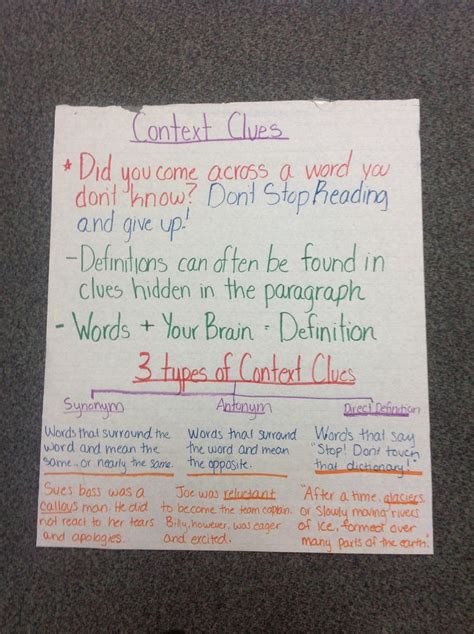 Context Clues
* Did you come across a word you
dont know? Dont Stop Reading
and give up!
- Definitions can often be found in
clues hidden in the paragraph
- Words + Your Brain = Definition
3 types of Context Clues
Synonym
Words that surround the
word and mean the
same or nearly the same.
Sues boss was a
callous man. He did
not react to her tears
and apologies.
Antonym
Words that surround
the word and mean
the opposite.
Joe was reluctant
to become the team captain.
Billy, however, was eager
and excited.
Direct Definition
Words that say
"Stop! Dont touch
that dictionary!"
"After a time, glaciers
or slowly moving rivers
of ice, formed over
many parts of the earth."